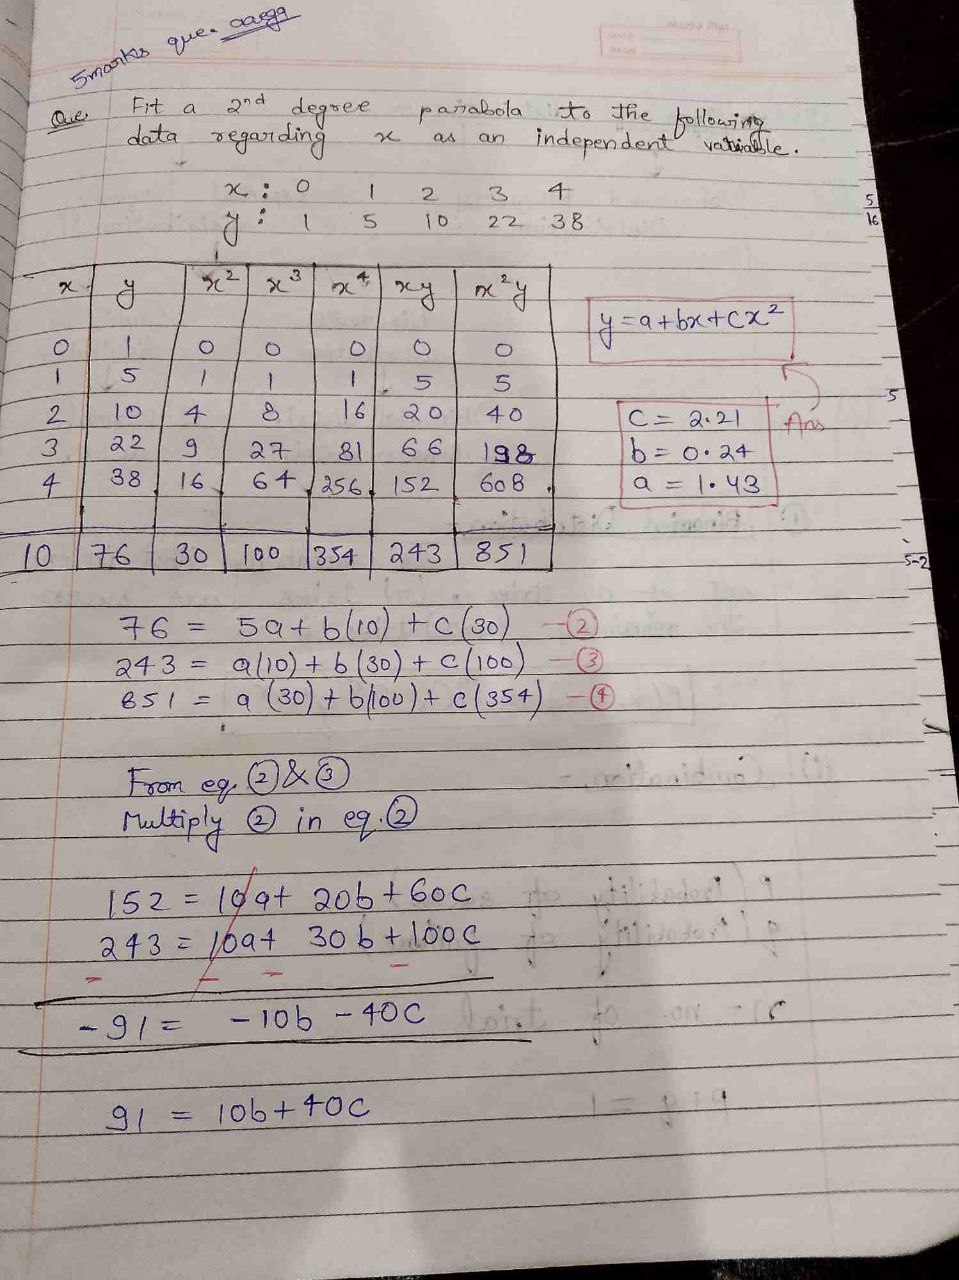 5 marks que. aaega
Que Fit a 2nd degree parabola to the following
data regarding x as an independent variable.
x : 0 1 2 3 4
y : 1 5 10 22 38
x y x² x³ x⁴ xy x²y
0 1 0 0 0 0 0
1 5 1 1 1 5 5
2 10 4 8 16 20 40
3 22 9 27 81 66 198
4 38 16 64 256 152 608
10 76 30 100 354 243 851
y = a + bx + cx²
c = 2.21
b = 0.24
a = 1.43
Ans
76 = 5a + b(10) + c(30) — ②
243 = a(10) + b(30) + c(100) — ③
851 = a(30) + b(100) + c(354) — ④
From eq. ② & ③
Multiply ② in eq. ②
152 = 10a + 20b + 60c
243 = 10a + 30b + 100c
- - - -
-91 = -10b - 40c
91 = 10b + 40c